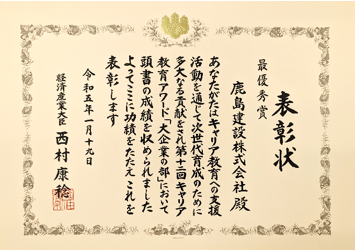 表彰状
最優秀賞
鹿島建設株式会社殿
あなたがたはキャリア教育への支援
活動を通して次世代育成のために
多大なる貢献をされ第十三回キャリア
教育アワード「大企業の部」において
頭書の成績を収められました
よってここに功績をたたえこれを
表彰します
令和五年一月十九日
経済産業大臣 西村康稔